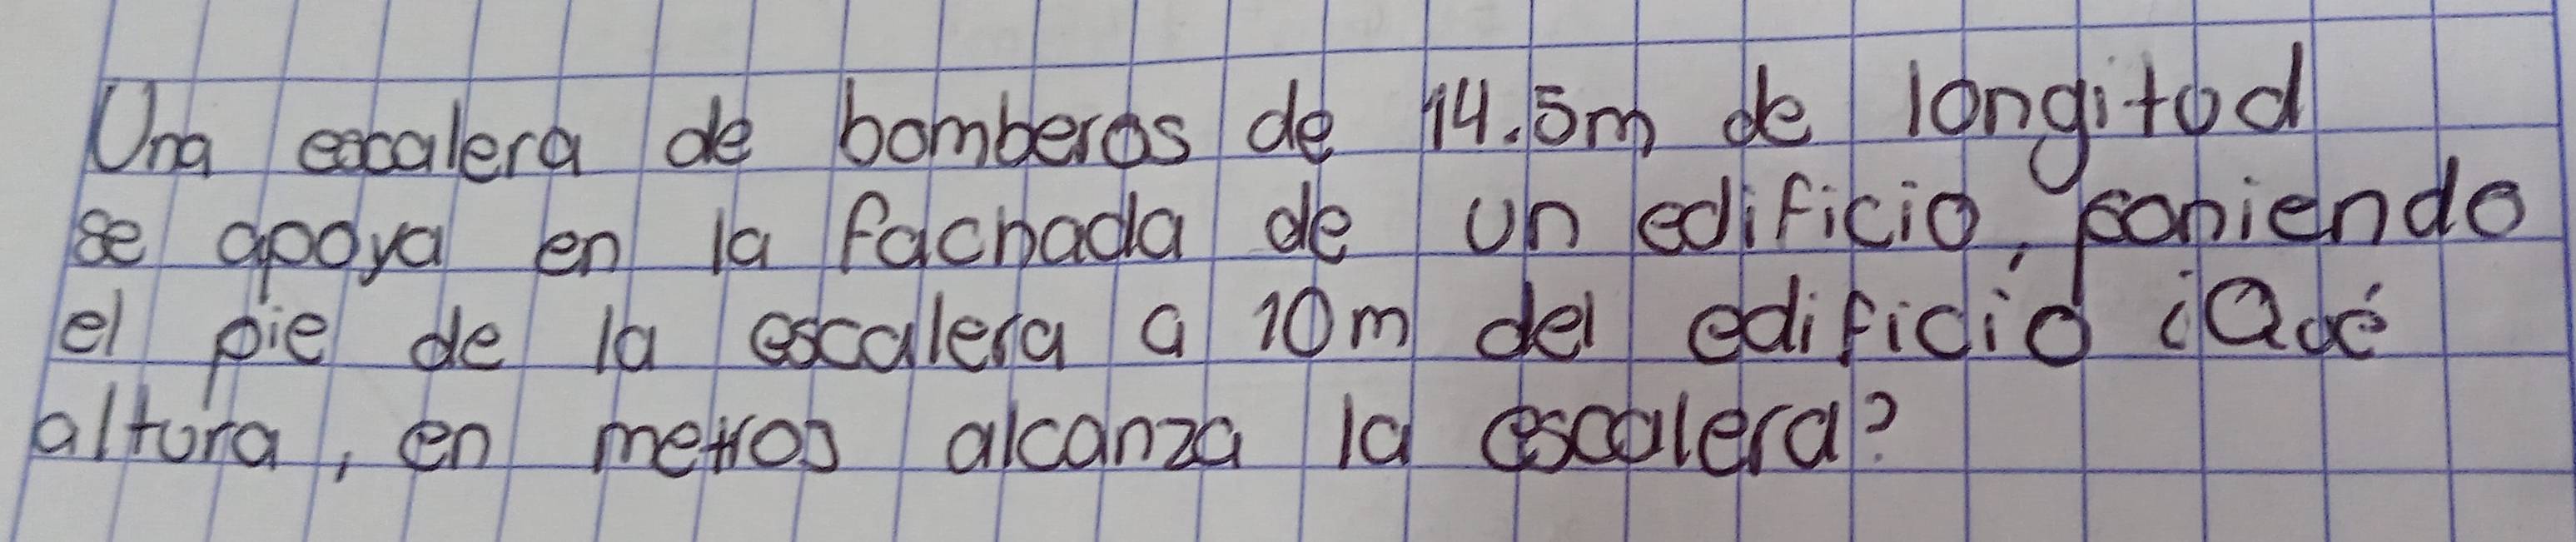 Una escalera de bomberos de 14.5m de longitud
se apoya en la fachada de un edificio, poniendo
el pie de la escalera a 10m del edificio ¿Qué
altura, en metros alcanza la escalera?